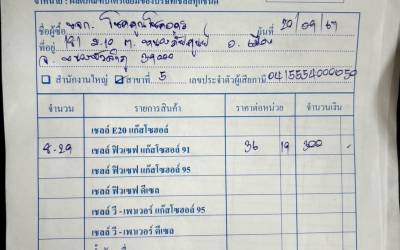 ชื่อผู้ซื้อ หจก. โชคคูณโชคถาวร วันที่ 20/09/67
ที่อยู่ 191 ม.10 ต. หนองบัว อ. เมือง
จ. หนองบัวลำภู 39000
สำนักงานใหญ่ ☑ สาขาที่ 5 เลขประจำตัวผู้เสียภาษี 0415554000050
จำนวน รายการสินค้า ราคาต่อหน่วย จำนวนเงิน
เชลล์ E20 แก๊สโซฮอล์
8.29 เชลล์ ฟิวเซฟ แก๊สโซฮอล์ 91 36 19 300
เชลล์ ฟิวเซฟ แก๊สโซฮอล์ 95
เชลล์ ฟิวเซฟ ดีเซล
เชลล์ วี - เพาเวอร์ แก๊สโซฮอล์ 95
เชลล์ วี - เพาเวอร์ ดีเซล